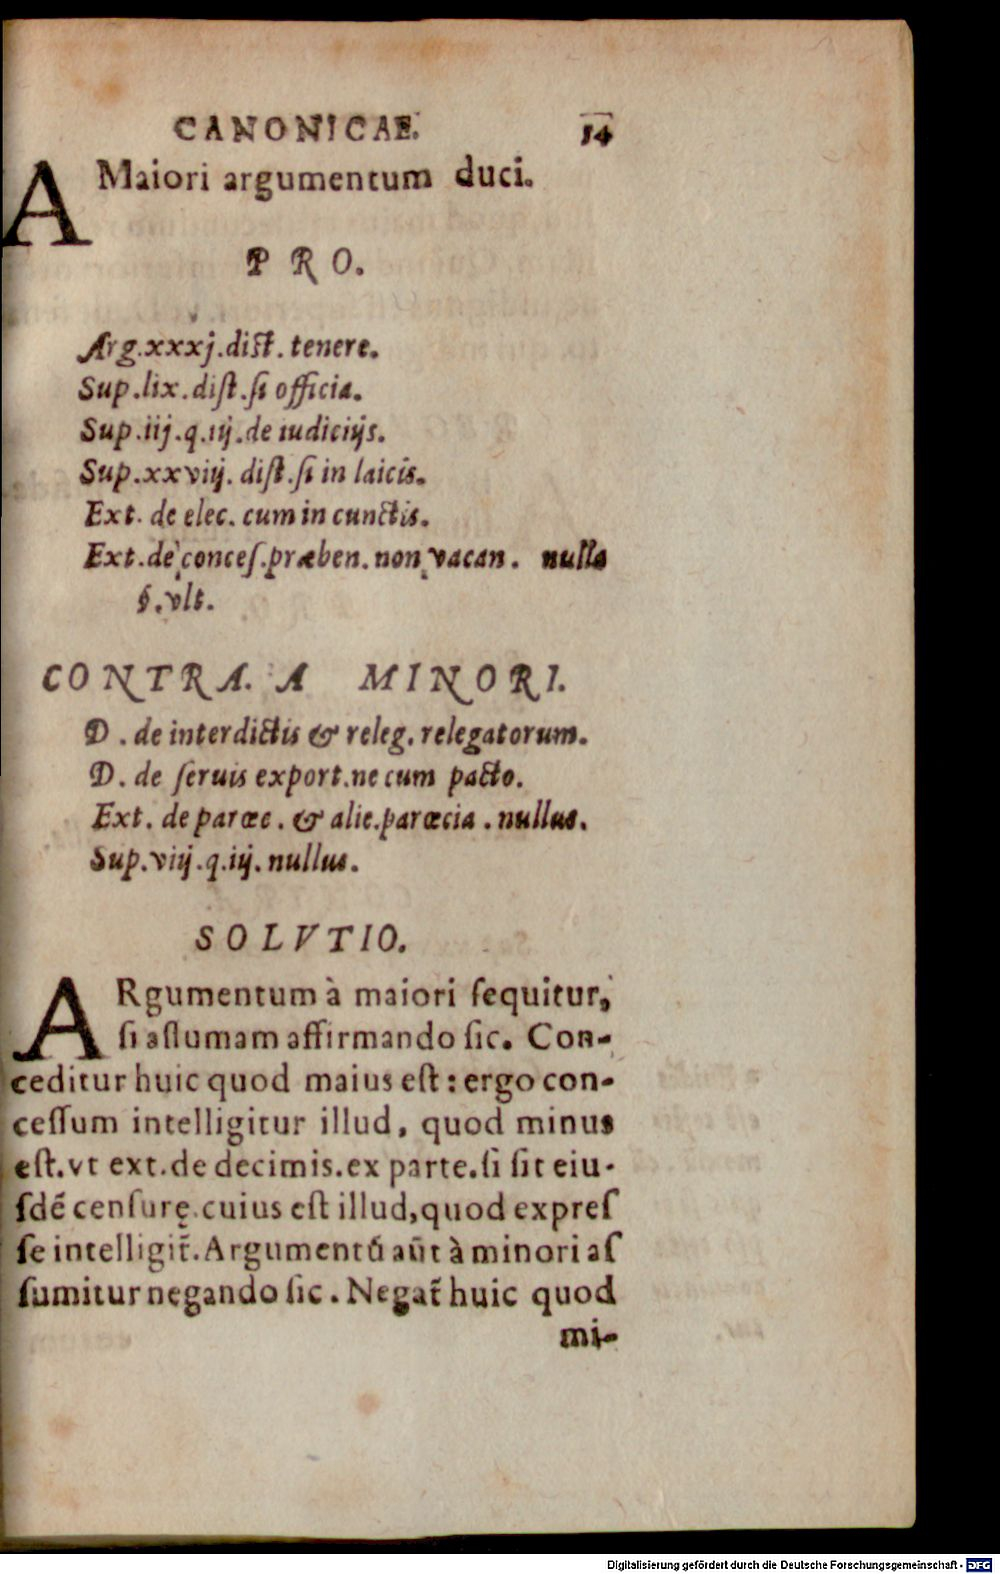 CANONICAE. 14
A Maiori argumentum duci.
PRO.
Arg.xxxj.dist. tenere.
Sup.lix.diſt.ſi officia.
Sup.iij.q.ij.de iudiciҳs.
Sup.xxviij. diſt.ſi in laicis.
Ext. de elec. cum in cunctis.
Ext.de conceſ.præben.non vacan. nulla
§.vlt.
CONTRA. A MINORI.
D. de interdictis & releg. relegatorum.
D. de ſeruis export.ne cum pacto.
Ext. de parœc. & alie.parœcia. nullus.
Sup.viij.q.ij. nullus.
SOLVTIO.
ARgumentum à maiori ſequitur,
ſi aſſumam affirmando ſic. Con-
ceditur huic quod maius eſt: ergo con-
ceſſum intelligitur illud, quod minus
eſt.vt ext.de decimis.ex parte.ſi ſit eiu-
ſdē cenſurę.cuius eſt illud,quod expreſ
ſe intelligit̃.Argumentũ aũt à minori aſ
ſumitur negando ſic. Negat̃ huic quod
mi-
Digitalisierung gefördert durch die Deutsche Forschungsgemeinschaft - DFG